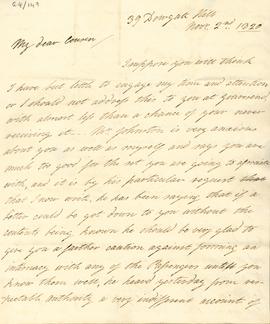 39 Dowgate Hill
Novr. 2nd 1820
My dear Cousin
I suppose you will think
I have but little to engage my time and attention
or I should not address this to you at
with almost less than a chance of your never
receiving it. Mr. Johnston is very anxious
about you as well as myself and says you are
much too good for the set you are going to associate
with, and it is by his particular request that
that I now write, he has been saying that if a
letter could be got down to you without the
contents being known he should be very glad to
give you a farther caution against forming an
intimacy with any of the Passengers untill you
know them well, he heard yesterday from
respectable authority a very indifferent account of